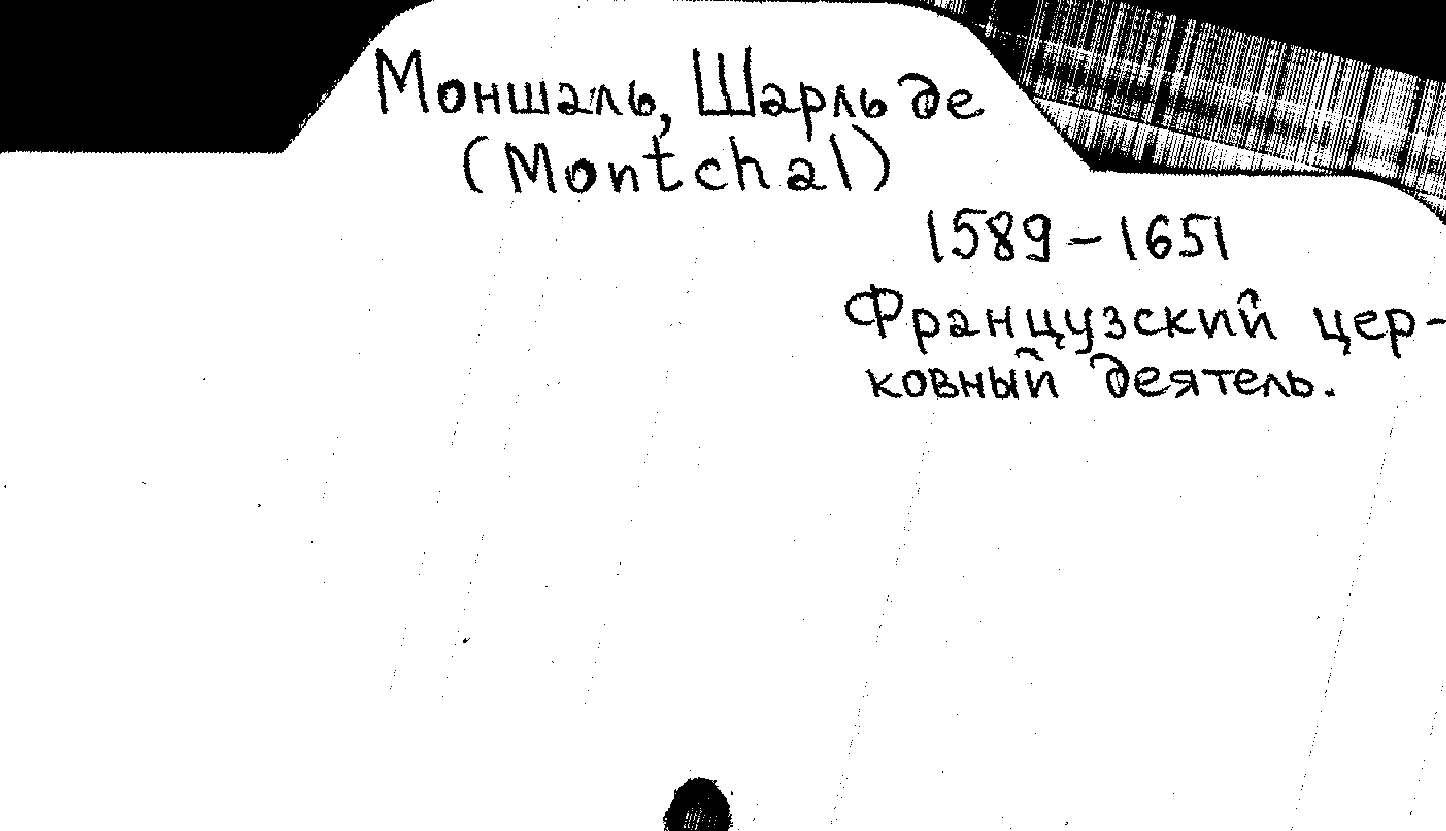 Моншаль, Шарль де
(Montchal)
1589-1651
Французский цер-
ковный деятель.